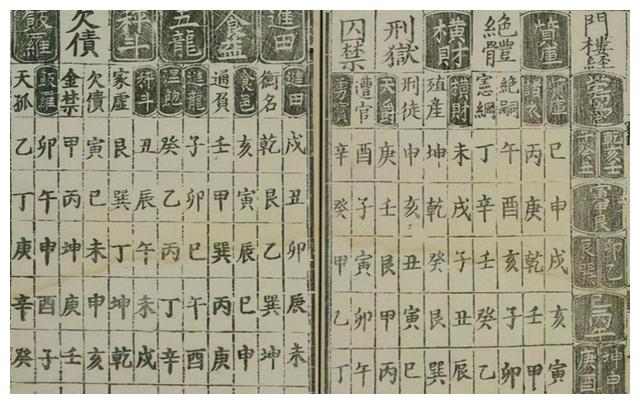 門樓經
巳丙午
坤申庚
質庫
巳申戌亥寅
丙庚乾壬甲
絕體骨
絕嗣午酉亥子卯
憲綱丁辛壬癸乙
橫財
橫財未戌子丑辰
殖産坤乾癸艮巽
刑獄
刑徒申亥丑寅巳
天爵庚壬艮甲丙
囚禁
遭官酉子寅卯午
辛癸甲乙丁
進田
進田戌丑卯辰未
銜名乾艮乙巽坤
食
食邑亥寅辰巳申
過負壬甲巽丙庚
五龍
進龍子卯巳午酉
溫飽癸乙丙丁辛
秤斗
秤斗丑辰午未戌
家虛艮巽丁坤乾
欠債
欠債寅巳未申亥
金禁甲丙坤庚壬
飯羅
飯羅卯午申酉子
天狐乙丁庚辛癸